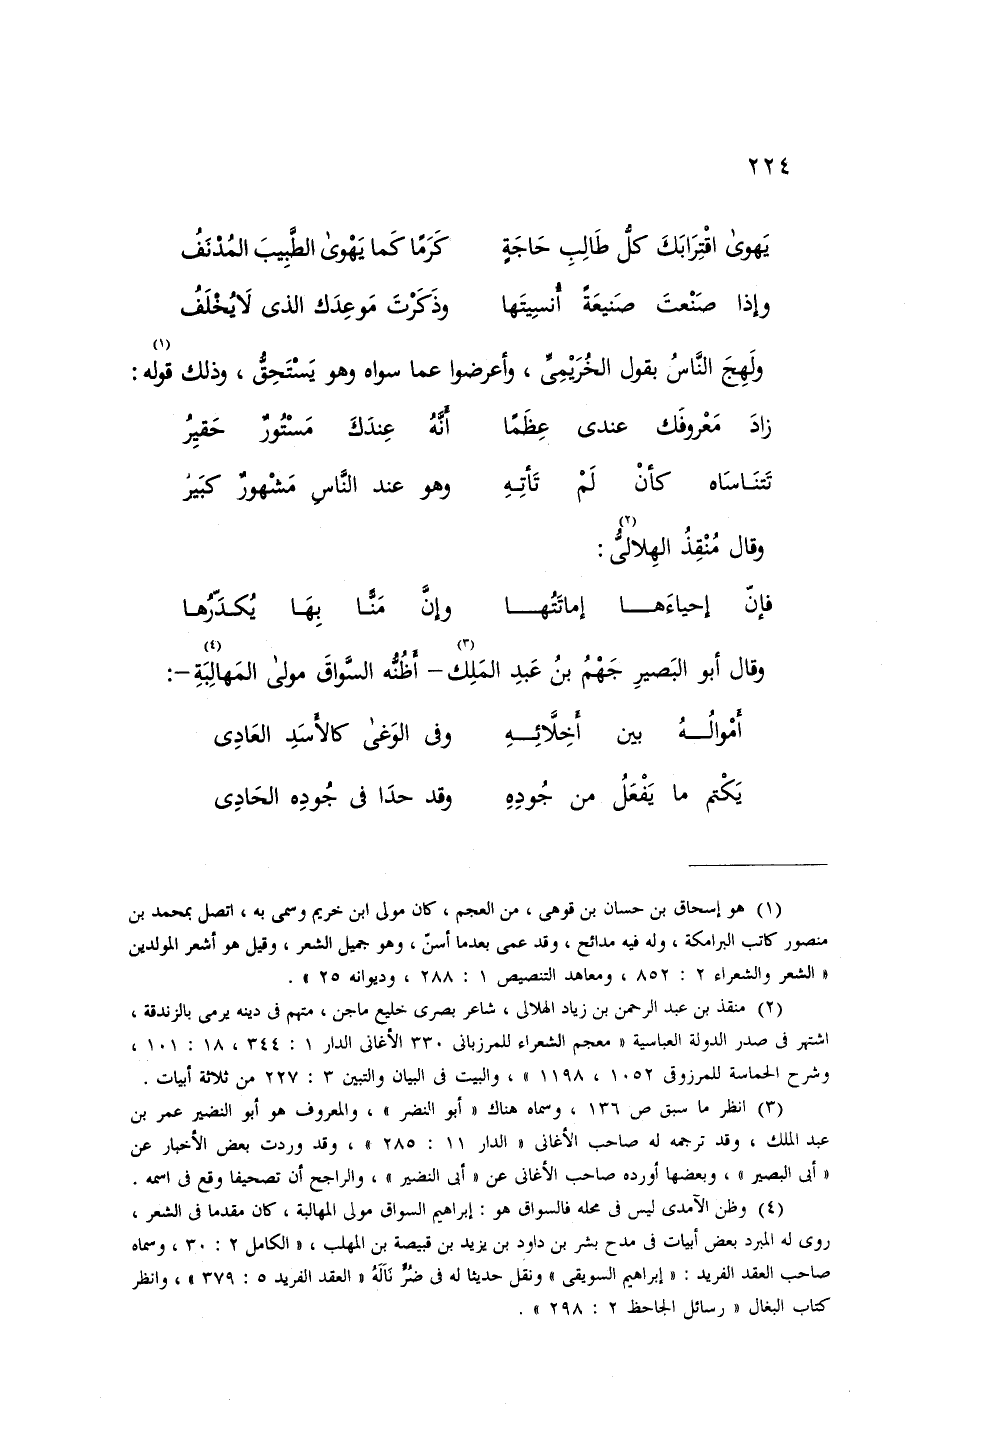 ٢٢٤
يَهوىٰ اقْتِرَابَكَ كلُّ طَالِبِ حَاجَةٍ كَرَمًا كَما يَهْوىٰ الطَّبِيبَ المُدْنَفُ
وإذا صَنْعتَ صَنيعَةً أُنسِيتَها وذَكَرْتَ مَوعِدَك الذى لَايُخْلَفُ
ولَهِجَ النَّاسُ بقول الخُرَيْمِىِّ ، وأعرضوا عما سواه وهو يَسْتَحِقُّ ، وذلك قوله (١) :
زادَ مَعْروفَك عندى عِظَمًا أَنَّهُ عِندَكَ مَسْتُورٌ حَقيِرُ
تَتنَـاسَاه كأنْ لَمْ تَأتِـهِ وهو عند النَّاسِ مَشْهورٌ كبَيرُ
وقال مُنْقِذُ الهِلالىُّ (٢) :
فإنّ إحياءَهـــا إماتَتُهـــا وإنَّ مَنًّـا بِهَـا يُكـدّرُهـا
وقال أبو البَصيرِ جَهْمُ بنُ عَبدِ المَلِك (٣) – أَظُنُّه السَّواقَ مولىٰ المَهالِبَةِ (٤) –:
أَمْوالُــهُ بين أَخِلَّائِــهِ وفى الوَغىٰ كالأَسَدِ العَادِى
يَكْتم ما يَفْعَلُ من جُودِهِ وقد حدَا فى جُودِه الحَادِى
(١) هو إسحاق بن حسان بن قوهى ، من العجم ، كان مولى ابن خريم وسمى به ، اتصل بمحمد بن
منصور كاتب البرامكة ، وله فيه مدائح ، وقد عمى بعدما أسنّ ، وهو جميل الشعر ، وقيل هو أشعر المولدين
« الشعر والشعراء ٢ : ٨٥٢ ، ومعاهد التنصيص ١ : ٢٨٨ ، وديوانه ٢٥ » .
(٢) منقذ بن عبد الرحمن بن زياد الهلالى ، شاعر بصرى خليع ماجن ، متهم فى دينه يرمى بالزندقة ،
اشتهر فى صدر الدولة العباسية « معجم الشعراء للمرزبانى ٣٣٠ الأغانى الدار ١ : ٣٤٤ ، ١٨ : ١٠١ ،
وشرح الحماسة للمرزوقى ١٠٥٢ ، ١١٩٨ » ، والبيت فى البيان والتبين ٣ : ٢٢٧ من ثلاثة أبيات .
(٣) انظر ما سبق ص ١٣٦ ، وسماه هناك « أبو النضر » ، والمعروف هو أبو النضير عمر بن
عبد الملك ، وقد ترجمه له صاحب الأغانى « الدار ١١ : ٢٨٥ » ، وقد وردت بعض الأخبار عن
« أبى البصير » ، وبعضها أورده صاحب الأغانى عن « أبى النضير » ، والراجح أن تصحيفا وقع فى اسمه .
(٤) وظن الآمدى ليس فى محله فالسواق هو : إبراهيم السواق مولى المهالبة ، كان مقدما فى الشعر ،
روى له المبرد بعض أبيات فى مدح بشر بن داود بن يزيد بن قبيصة بن المهلب ، « الكامل ٢ : ٣٠ ، وسماه
صاحب العقد الفريد : « إبراهيم السويقى » ونقل حديثا له فى ضُرٌّ نَالَهُ « العقد الفريد ٥ : ٣٧٩ » ، وانظر
كتاب البغال « رسائل الجاحظ ٢ : ٢٩٨ » .